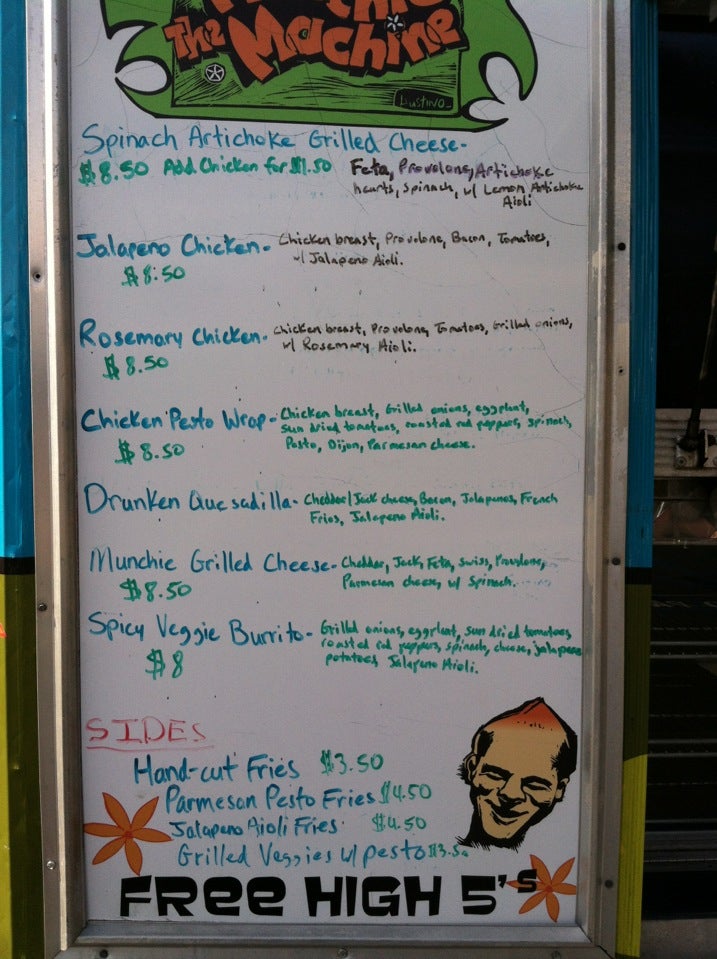 The Machine
Dustino
Spinach Artichoke Grilled Cheese-
$8.50 Add Chicken for $1.50 Feta, Provolone, Artichoke
hearts, spinach, w/ Lemon Artichoke
Aioli
Jalapeno Chicken- Chicken breast, Provolone, Bacon, Tomatoes,
w/ Jalapeno Aioli.
$8.50
Rosemary Chicken- Chicken breast, Provolone, Tomatoes, Grilled onions,
w/ Rosemary Aioli.
$8.50
Chicken Pesto Wrap- Chicken breast, Grilled onions, eggplant,
sun dried tomatoes, roasted red peppers, spinach,
$8.50 Pesto, Dijon, Parmesan cheese.
Drunken Quesadilla- Cheddar/Jack cheese, Bacon, Jalapenos, French
Fries, Jalapeno Aioli.
Munchie Grilled Cheese- Cheddar, Jack, Feta, Swiss, Provolone,
$8.50 Parmesan cheese, w/ Spinach.
Spicy Veggie Burrito- Grilled onions, eggplant, sun dried tomatoes
roasted red peppers, spinach, cheese, jalapeno
$8 potatoes, Jalapeno Aioli.
SIDES
Hand-cut Fries $3.50
Parmesan Pesto Fries $4.50
Jalapeno Aioli Fries $4.50
Grilled Veggies w/ pesto $3.50
FREE HIGH 5's